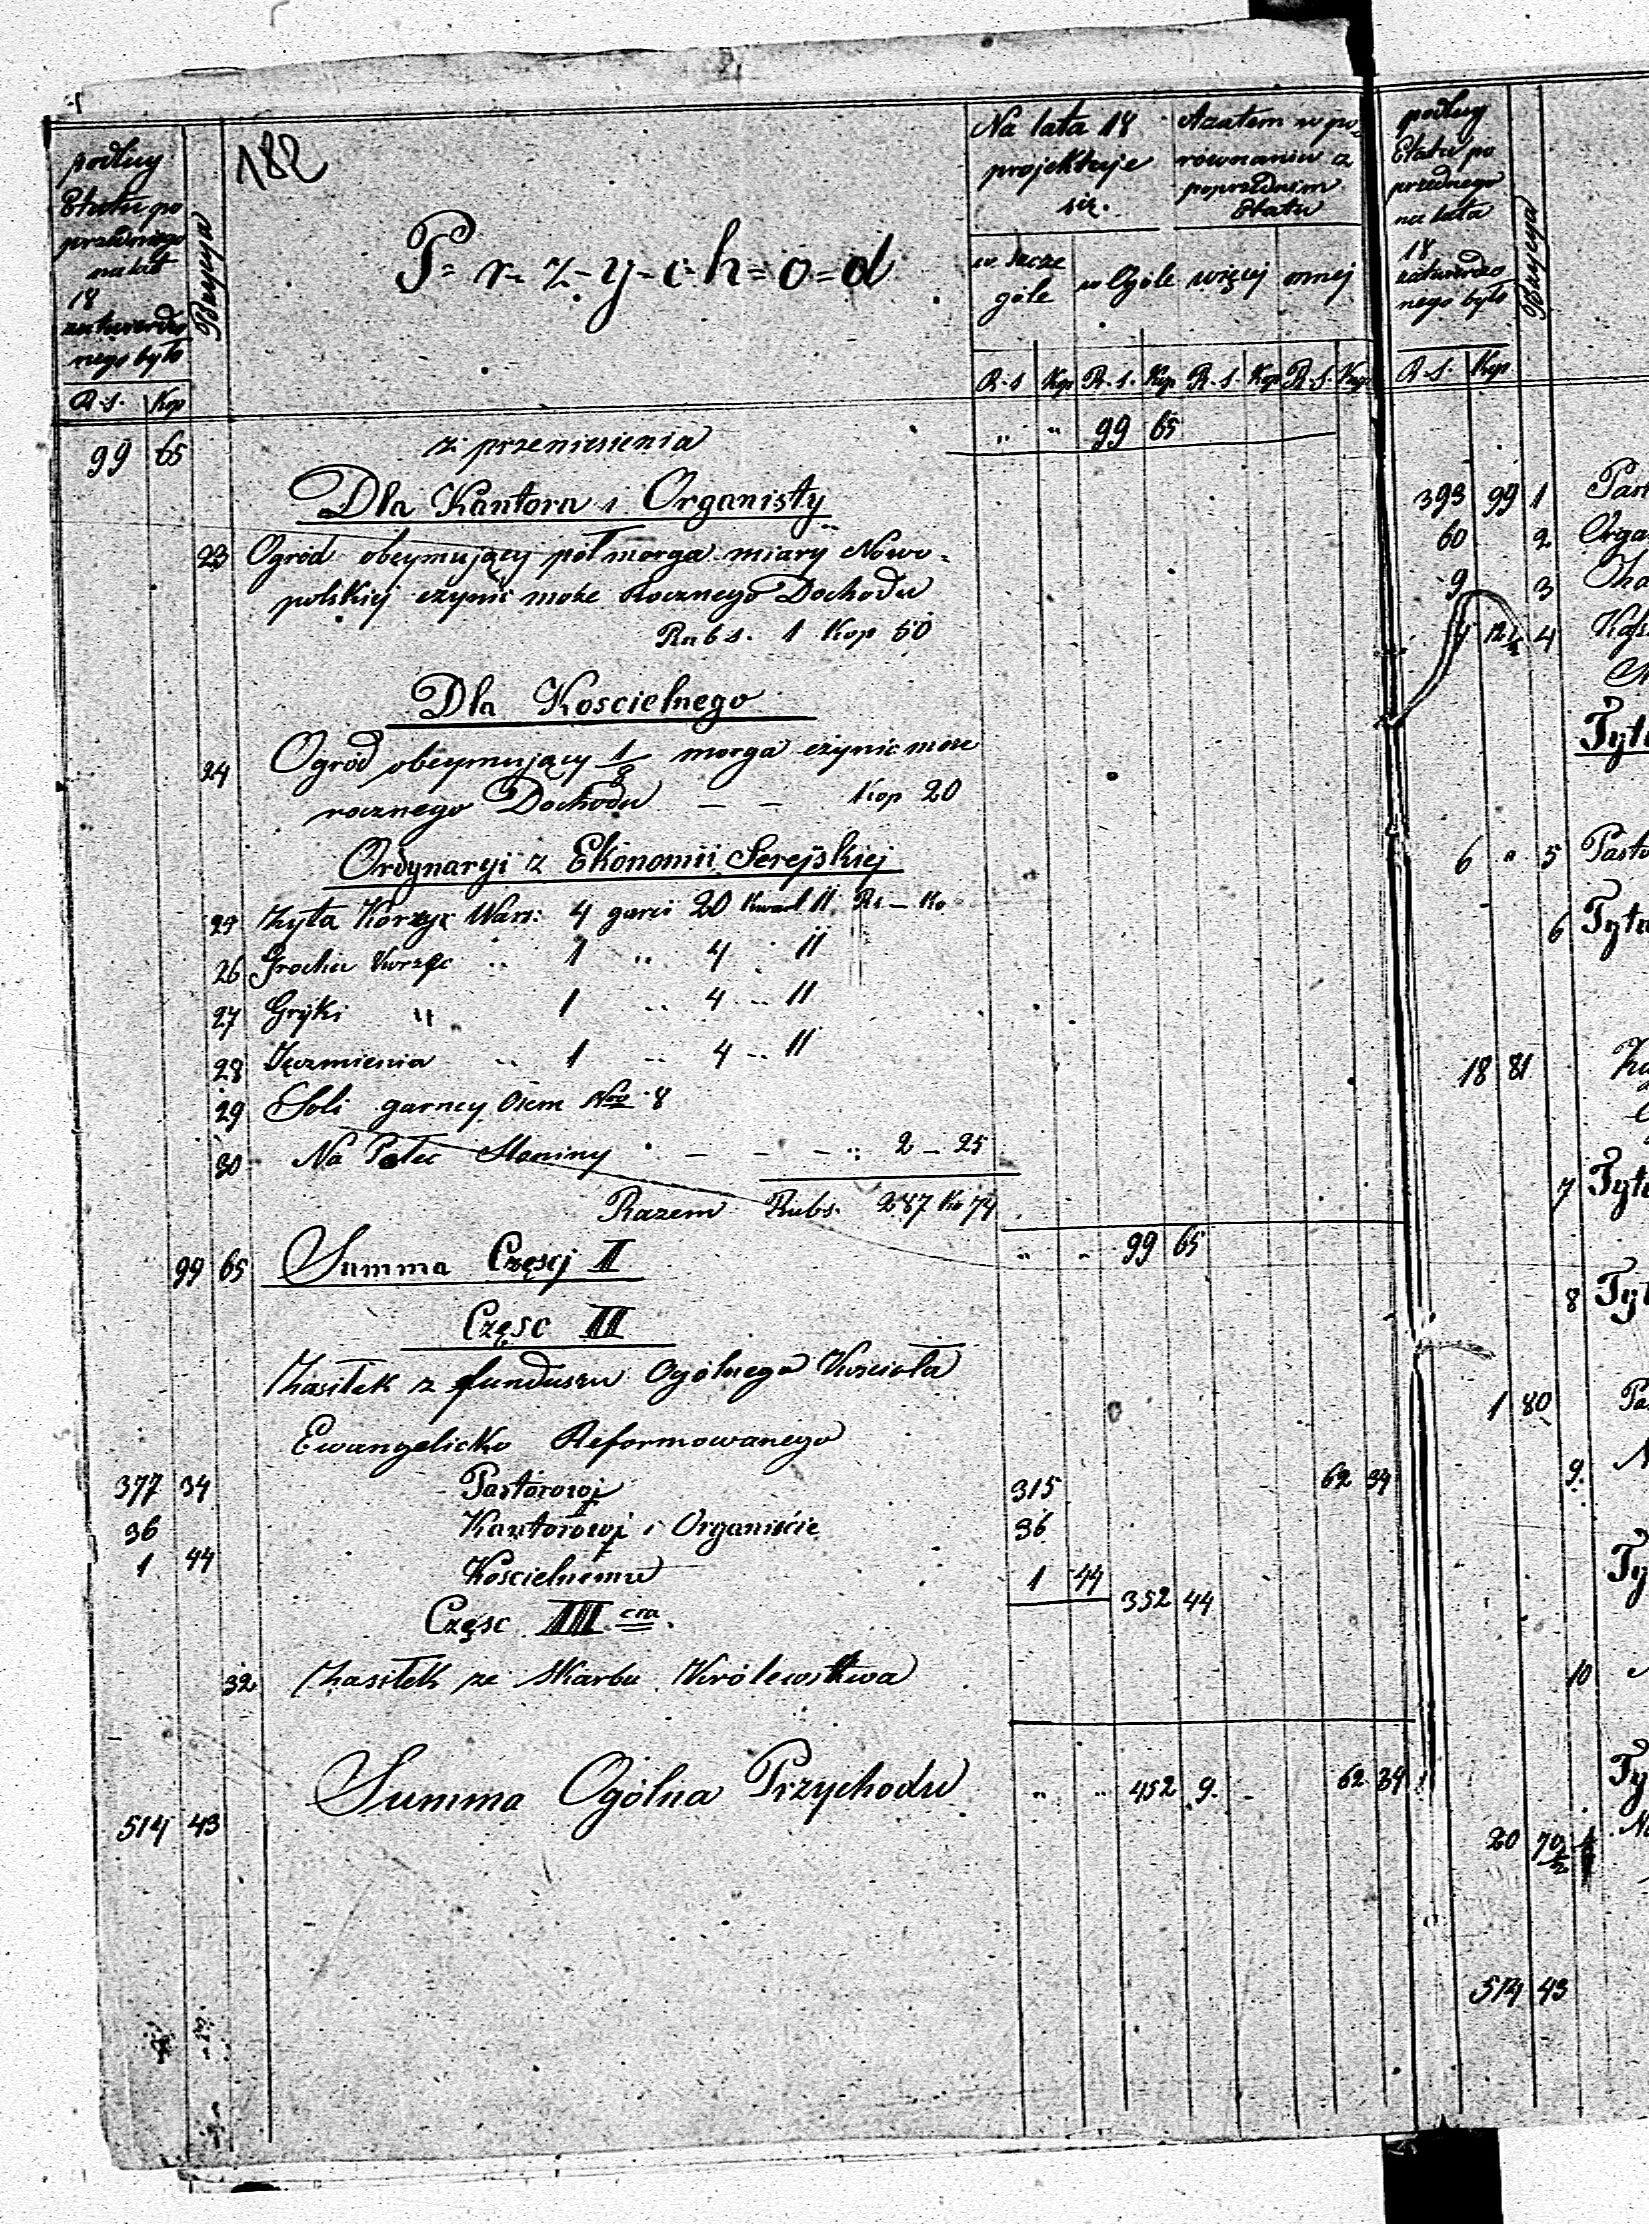 182
podług
Etatu po
przedniego
na lat
18
zatwierdzo
nego było
Pozycya
P=r=z=y=c=h=o=d
Na lata 18
projektuje
się.
A zatem w po=
równaniu z
poprzednim
Etatu
w szcze
góle
w Ogóle
więcej
mniej
R.s. Kop
R.s Kop R.s. Kop R.s. Kop R.s. Kop
99 65 z przeniesienia „ „ 99 65
Dla Kantora i Organisty
23 Ogród obeymujący pół morga miary Nowo=
polskiej czynić może Rocznego Dochodu
Rubs. 1 Kop 50
Dla Koscielnego
24 Ogród obeymujący 1/8 morga czynić może
rocznego Dochodu — — Kop 20
Ordynaryi z Ekonomii Serejskiej
25 Żyta Korzyc Wars: 4 garcy 20 Kwart II Rs — Ko
26 Grochu Korzec „ 1 „ 4 „ II
27 Gryki „ 1 „ 4 „ II
28 Jęczmienia „ 1 „ 4 „ II
29 Soli garncy Osm Nro 8
30 Na Połeć Słoniny — — — „ 2 — 25
Razem Rubs. 287 Ko 74
99 65 Summa Częscj II „ „ 99 65
Częsc II
Zasiłek z funduszu Ogólnego Kościoła
Ewangelicko Reformowanego
377 34 Pastorowi 315 62 34
36 Kantorowi i Organiście 36
1 44 Koscielnemu 1 44 352 44
Częsc III cia
32 Zasiłek ze Skarbu Królewstwa
Summa Ogólna Przychodu „ „ 452 9. 62 34
514 43
podług
Etatu po
przedniego
na lata
18
zatwierdzo
nego było
Pozycya
R.s. Kop
393 99 1
60 2
9 3
4 12½ 4
6 „ 5
6
18 81
7
8
1 80
9.
10
20 70½
514 43